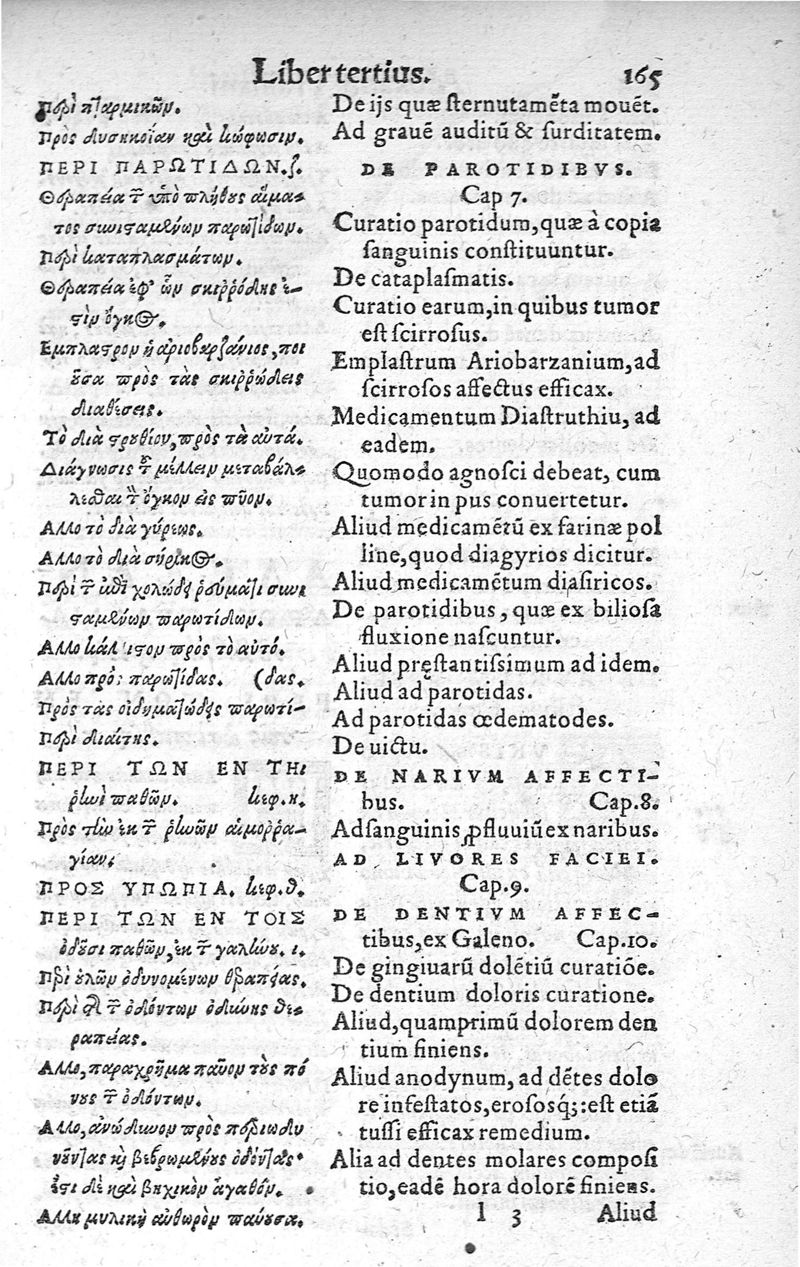 Liber tertius. 165
Περὶ πταρμικῶν.
Πρὸς δυσηκοΐαν καὶ κώφωσιν.
ΠΕΡΙ ΠΑΡΩΤΙΔΩΝ. ζ.
Θεραπεία τῶν ὑπὸ πλήθους αἵμα-
τος συνισταμένων παρωτίδων.
Περὶ καταπλασμάτων.
Θεραπεία ἐφ' ὧν σκιρρώδης ἐ-
στὶν ὄγκος.
Εμπλαστρον ἡ αριοβαρζάνιος, ποι
οῦσα πρὸς τὰς σκιρρώδεις
διαθέσεις.
Τὸ διὰ στρουθίου, πρὸς τὰ αὐτά.
Διάγνωσις τοῦ μέλλειν μεταβάλ-
λεσθαι τὸν ὄγκον εἰς πῦον.
Αλλο τὸ διὰ γύρεως.
Αλλο τὸ διὰ σηρικος.
Περὶ τῶν ἐπὶ χολώδει ῥεύματι συνι
σταμένων παρωτίδων.
Αλλο κάλλιστον πρὸς τὸ αὐτό.
Αλλο πρὸς παρωτίδας. (δας.
Πρὸς τὰς οἰδηματώδεις παρωτί-
Περὶ διαίτης.
ΠΕΡΙ ΤΩΝ ΕΝ ΤΗι
ῥινὶ παθῶν. κεφ. η.
Πρὸς τὴν ἐκ τῶν ῥινῶν αἱμορρα-
γίαν.
ΠΡΟΣ ΥΠΩΠΙΑ. κεφ. θ.
ΠΕΡΙ ΤΩΝ ΕΝ ΤΟΙΣ
ὀδοῦσι παθῶν, ἐκ τῶν γαλίνου. ι.
Περὶ οὔλων ὀδυνομένων θεραπείας.
Περὶ τῆς τῶν ὀδόντων ὀδύνης θε-
ραπείας.
Αλλο, παραχρῆμα παῦον τοὺς πό
νους τῶν ὀδόντων.
Αλλο, ἀνώδυνον πρὸς περιωδυ
νοῦντας καὶ βεβρωμένους ὀδόντας·
ἔτι δὲ καὶ βηχικὸν ἀγαθόν.
Αλλη μυλικὴ αὐθωρὸν παύουσα.
De ijs quæ sternutamēta mouēt.
Ad grauē auditū & surditatem.
DE PAROTIDIBVS.
Cap 7.
Curatio parotidum, quæ à copia
sanguinis constituuntur.
De cataplasmatis.
Curatio earum, in quibus tumor
est scirrosus.
Emplastrum Ariobarzanium, ad
scirrosos affectus efficax.
Medicamentum Diastruthiu, ad
eadem.
Quomodo agnosci debeat, cum
tumor in pus conuertetur.
Aliud medicamētū ex farinæ pol
line, quod diagyrios dicitur.
Aliud medicamētum diasiricos.
De parotidibus, quæ ex biliosa
fluxione nascuntur.
Aliud pręstantissimum ad idem.
Aliud ad parotidas.
Ad parotidas œdematodes.
De uictu.
DE NARIVM AFFECTI-
bus. Cap.8.
Ad sanguinis ꝓfluuiū ex naribus.
AD LIVORES FACIEI.
Cap.9.
DE DENTIVM AFFEC-
tibus, ex Galeno. Cap.10.
De gingiuarū dolētiū curatiōe.
De dentium doloris curatione.
Aliud, quamprimū dolorem den
tium finiens.
Aliud anodynum, ad dētes dolo
re infestatos, erososq́;: est etiā
tussi efficax remedium.
Alia ad dentes molares composi
tio, eadē hora dolorē finiens.
l 3 Aliud